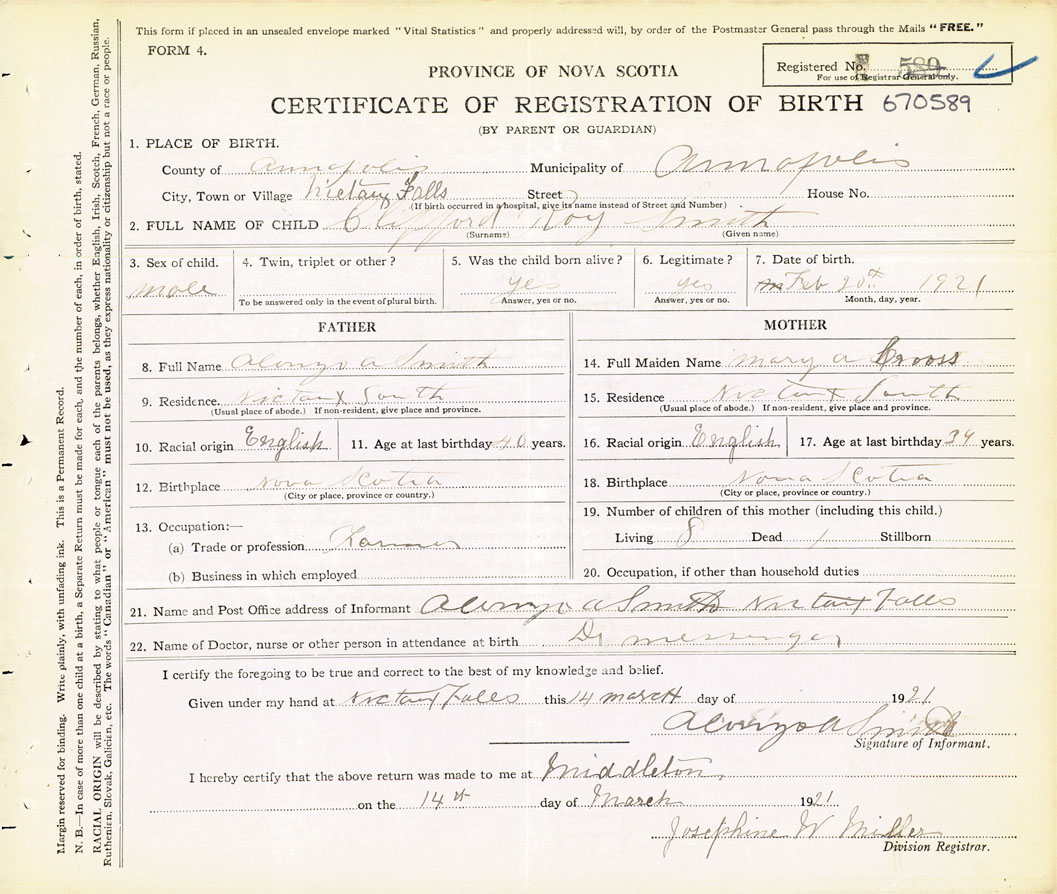 This form if placed in an unsealed envelope marked "Vital Statistics" and properly addressed will, by order of the Postmaster General pass through the Mails "FREE."
FORM 4.
Registered No. 589
For use of Registrar General only.
PROVINCE OF NOVA SCOTIA
CERTIFICATE OF REGISTRATION OF BIRTH 670589
(BY PARENT OR GUARDIAN)
1. PLACE OF BIRTH.
County of Annapolis Municipality of Annapolis
City, Town or Village Nictaux Falls Street House No.
(If birth occurred in a hospital, give its name instead of Street and Number)
2. FULL NAME OF CHILD Clifford Roy Smith
(Surname) (Given name)
3. Sex of child. 4. Twin, triplet or other? 5. Was the child born alive? 6. Legitimate? 7. Date of birth.
male yes yes Feb 20th 1921
To be answered only in the event of plural birth. Answer, yes or no. Answer, yes or no. Month, day, year.
FATHER
8. Full Name Alonzo A Smith
9. Residence. Nictaux South
(Usual place of abode.) If non-resident, give place and province.
10. Racial origin English 11. Age at last birthday 40 years.
12. Birthplace Nova Scotia
(City or place, province or country.)
13. Occupation:—
(a) Trade or profession Farmer
(b) Business in which employed
MOTHER
14. Full Maiden Name Mary A
15. Residence Nictaux South
(Usual place of abode.) If non-resident, give place and province.
16. Racial origin English 17. Age at last birthday years.
18. Birthplace Nova Scotia
(City or place, province or country.)
19. Number of children of this mother (including this child.)
Living 8 Dead 1 Stillborn
20. Occupation, if other than household duties
21. Name and Post Office address of Informant Alonzo A Smith Nictaux Falls
22. Name of Doctor, nurse or other person in attendance at birth Dr messenger
I certify the foregoing to be true and correct to the best of my knowledge and belief.
Given under my hand at Nictaux Falls this 14 march day of 1921
Alonzo A Smith
Signature of Informant.
I hereby certify that the above return was made to me at Middleton,
on the 14th day of March 1921
Josephine W Miller
Division Registrar.
Margin reserved for binding. Write plainly, with unfading ink. This is a Permanent Record.
N. B.—In case of more than one child at a birth, a Separate Return must be made for each, and the number of each, in order of birth, stated.
RACIAL ORIGIN will be described by stating to what people or tongue each of the parents belongs, whether English, Irish, Scotch, French, German, Russian,
Ruthenian, Slovak, Galician, etc. The words "Canadian" or "American" must not be used, as they express nationality or citizenship but not a race or people.